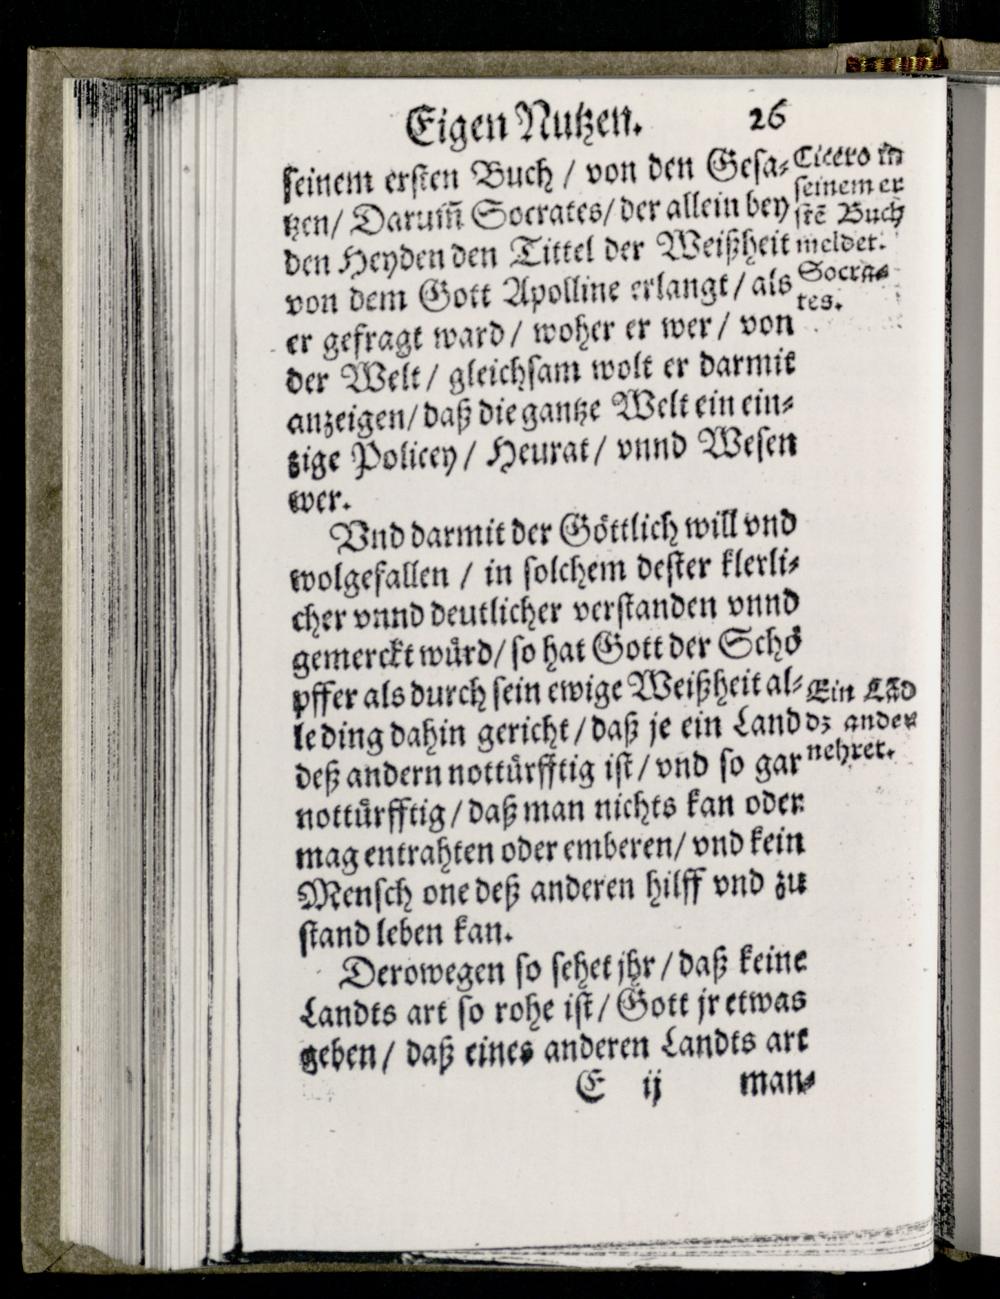 Eigen Nutzen. 26
seinem ersten Buch / von den Gesa⸗
tzen / Darum̃ Socrates / der allein bey
den Heyden den Tittel der Weißheit
von dem Gott Apolline erlangt / als
er gefragt ward / woher er wer / von
der Welt / gleichsam wolt er darmit
anzeigen / daß die gantze Welt ein ein⸗
zige Policey / Heurat / vnnd Wesen
wer.
Vnd darmit der Göttlich will vnd
wolgefallen / in solchem dester klerli⸗
cher vnnd deutlicher verstanden vnnd
gemerckt würd / so hat Gott der Schö
pffer als durch sein ewige Weißheit al⸗
le ding dahin gericht / daß je ein Land
deß andern nottürfftig ist / vnd so gar
nottürfftig / daß man nichts kan oder
mag entrahten oder emberen / vnd kein
Mensch one deß anderen hilff vnd zu
stand leben kan.
Derowegen so sehet jhr / daß keine
Landts art so rohe ist / Gott jr etwas
geben / daß eines anderen Landts art
E ij man⸗
Cicero in
seinem er
stē Buch
meldet.
Socra⸗
tes.
Ein Lãd
dz ander
nehret.